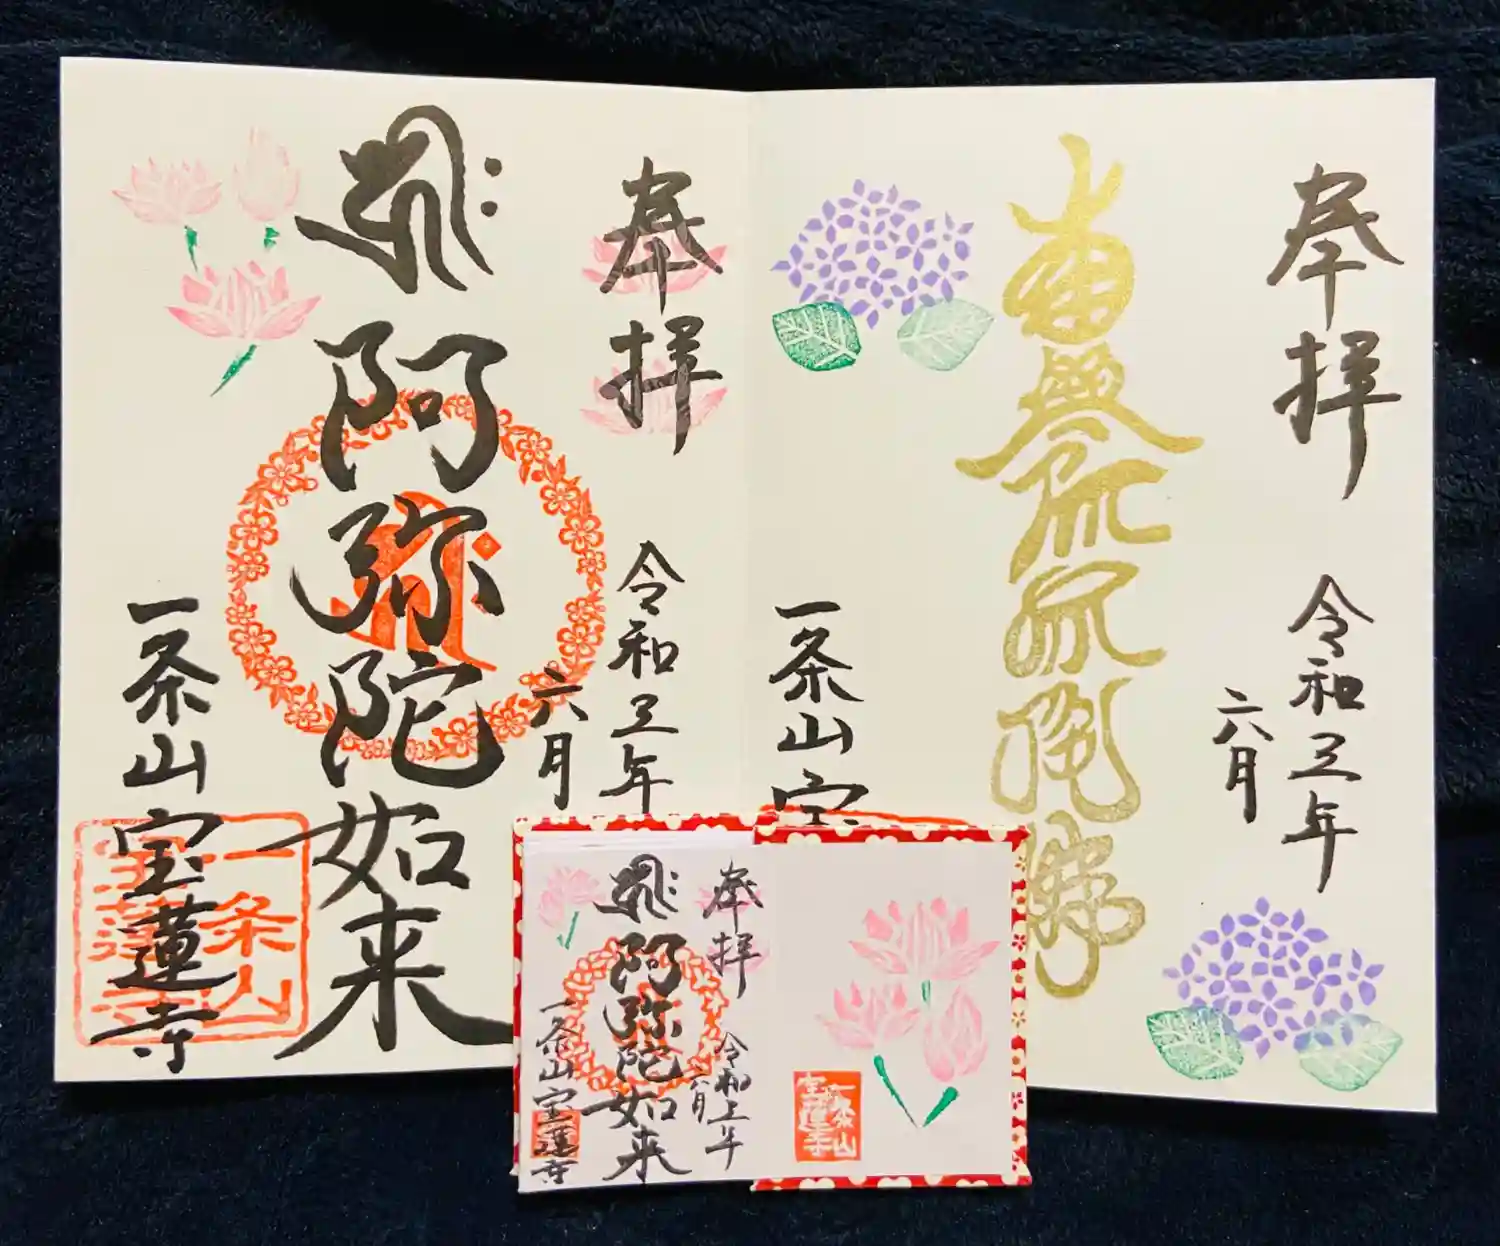 奉拝
令和三年
六月
南無阿弥陀佛
一条山宝
奉拝
令和三年
六月
阿弥陀如来
一条山宝蓮寺
一条山
宝蓮寺
一条山
宝蓮寺
奉拝
令和三年
六月
阿弥陀如来
一条山宝蓮寺